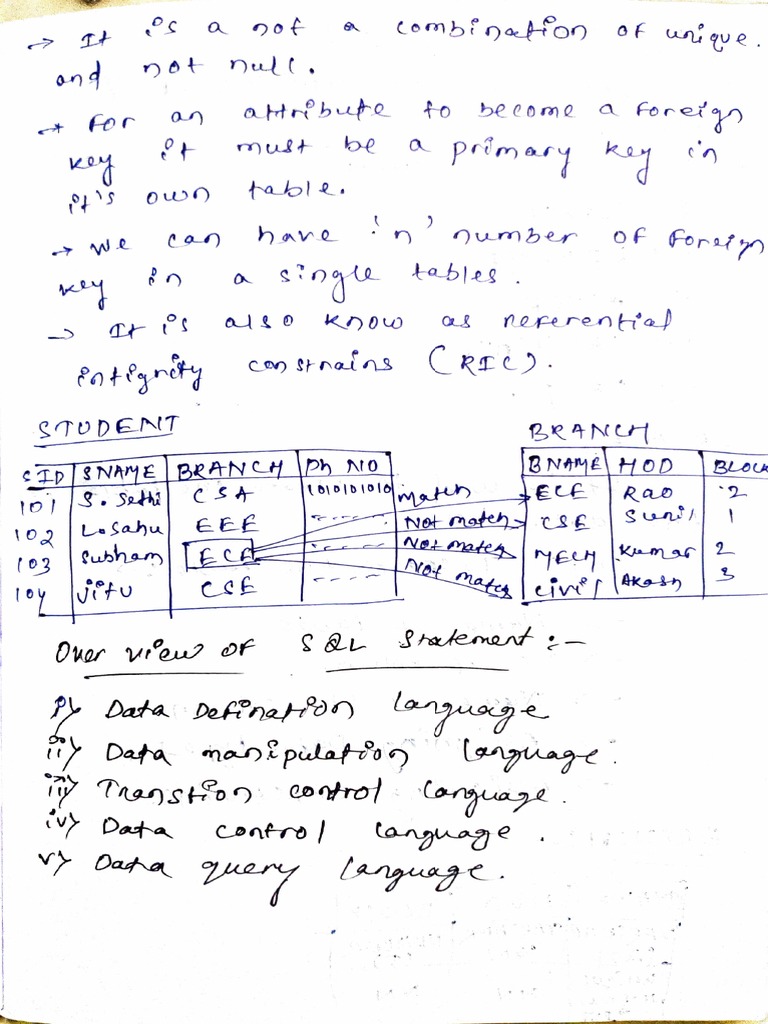 → It is a not a combination of unique.
and not null.
→ For an attribute to become a foreign
key it must be a primary key in
it's own table.
→ we can have 'n' number of foreign
key in a single tables.
→ It is also know as referential
intignity constrains (RIC).
STUDENT BRANCH
SID SNAME BRANCH Ph NO BNAME HOD BLOCK
101 S. Sethi CSA 1010101010 match ECE Rao 2
102 L. Sahu EEE ---- Not match CSE Sunil 1
103 Subham ECE ---- Not match MECH Kumar 2
104 Jitu CSE ---- Not match civil Akash 3
Over view of SQL Statement :-
i) Data Defination language
ii) Data manipulation language.
iii) Transtion control language.
iv) Data control language.
v) Data query language.